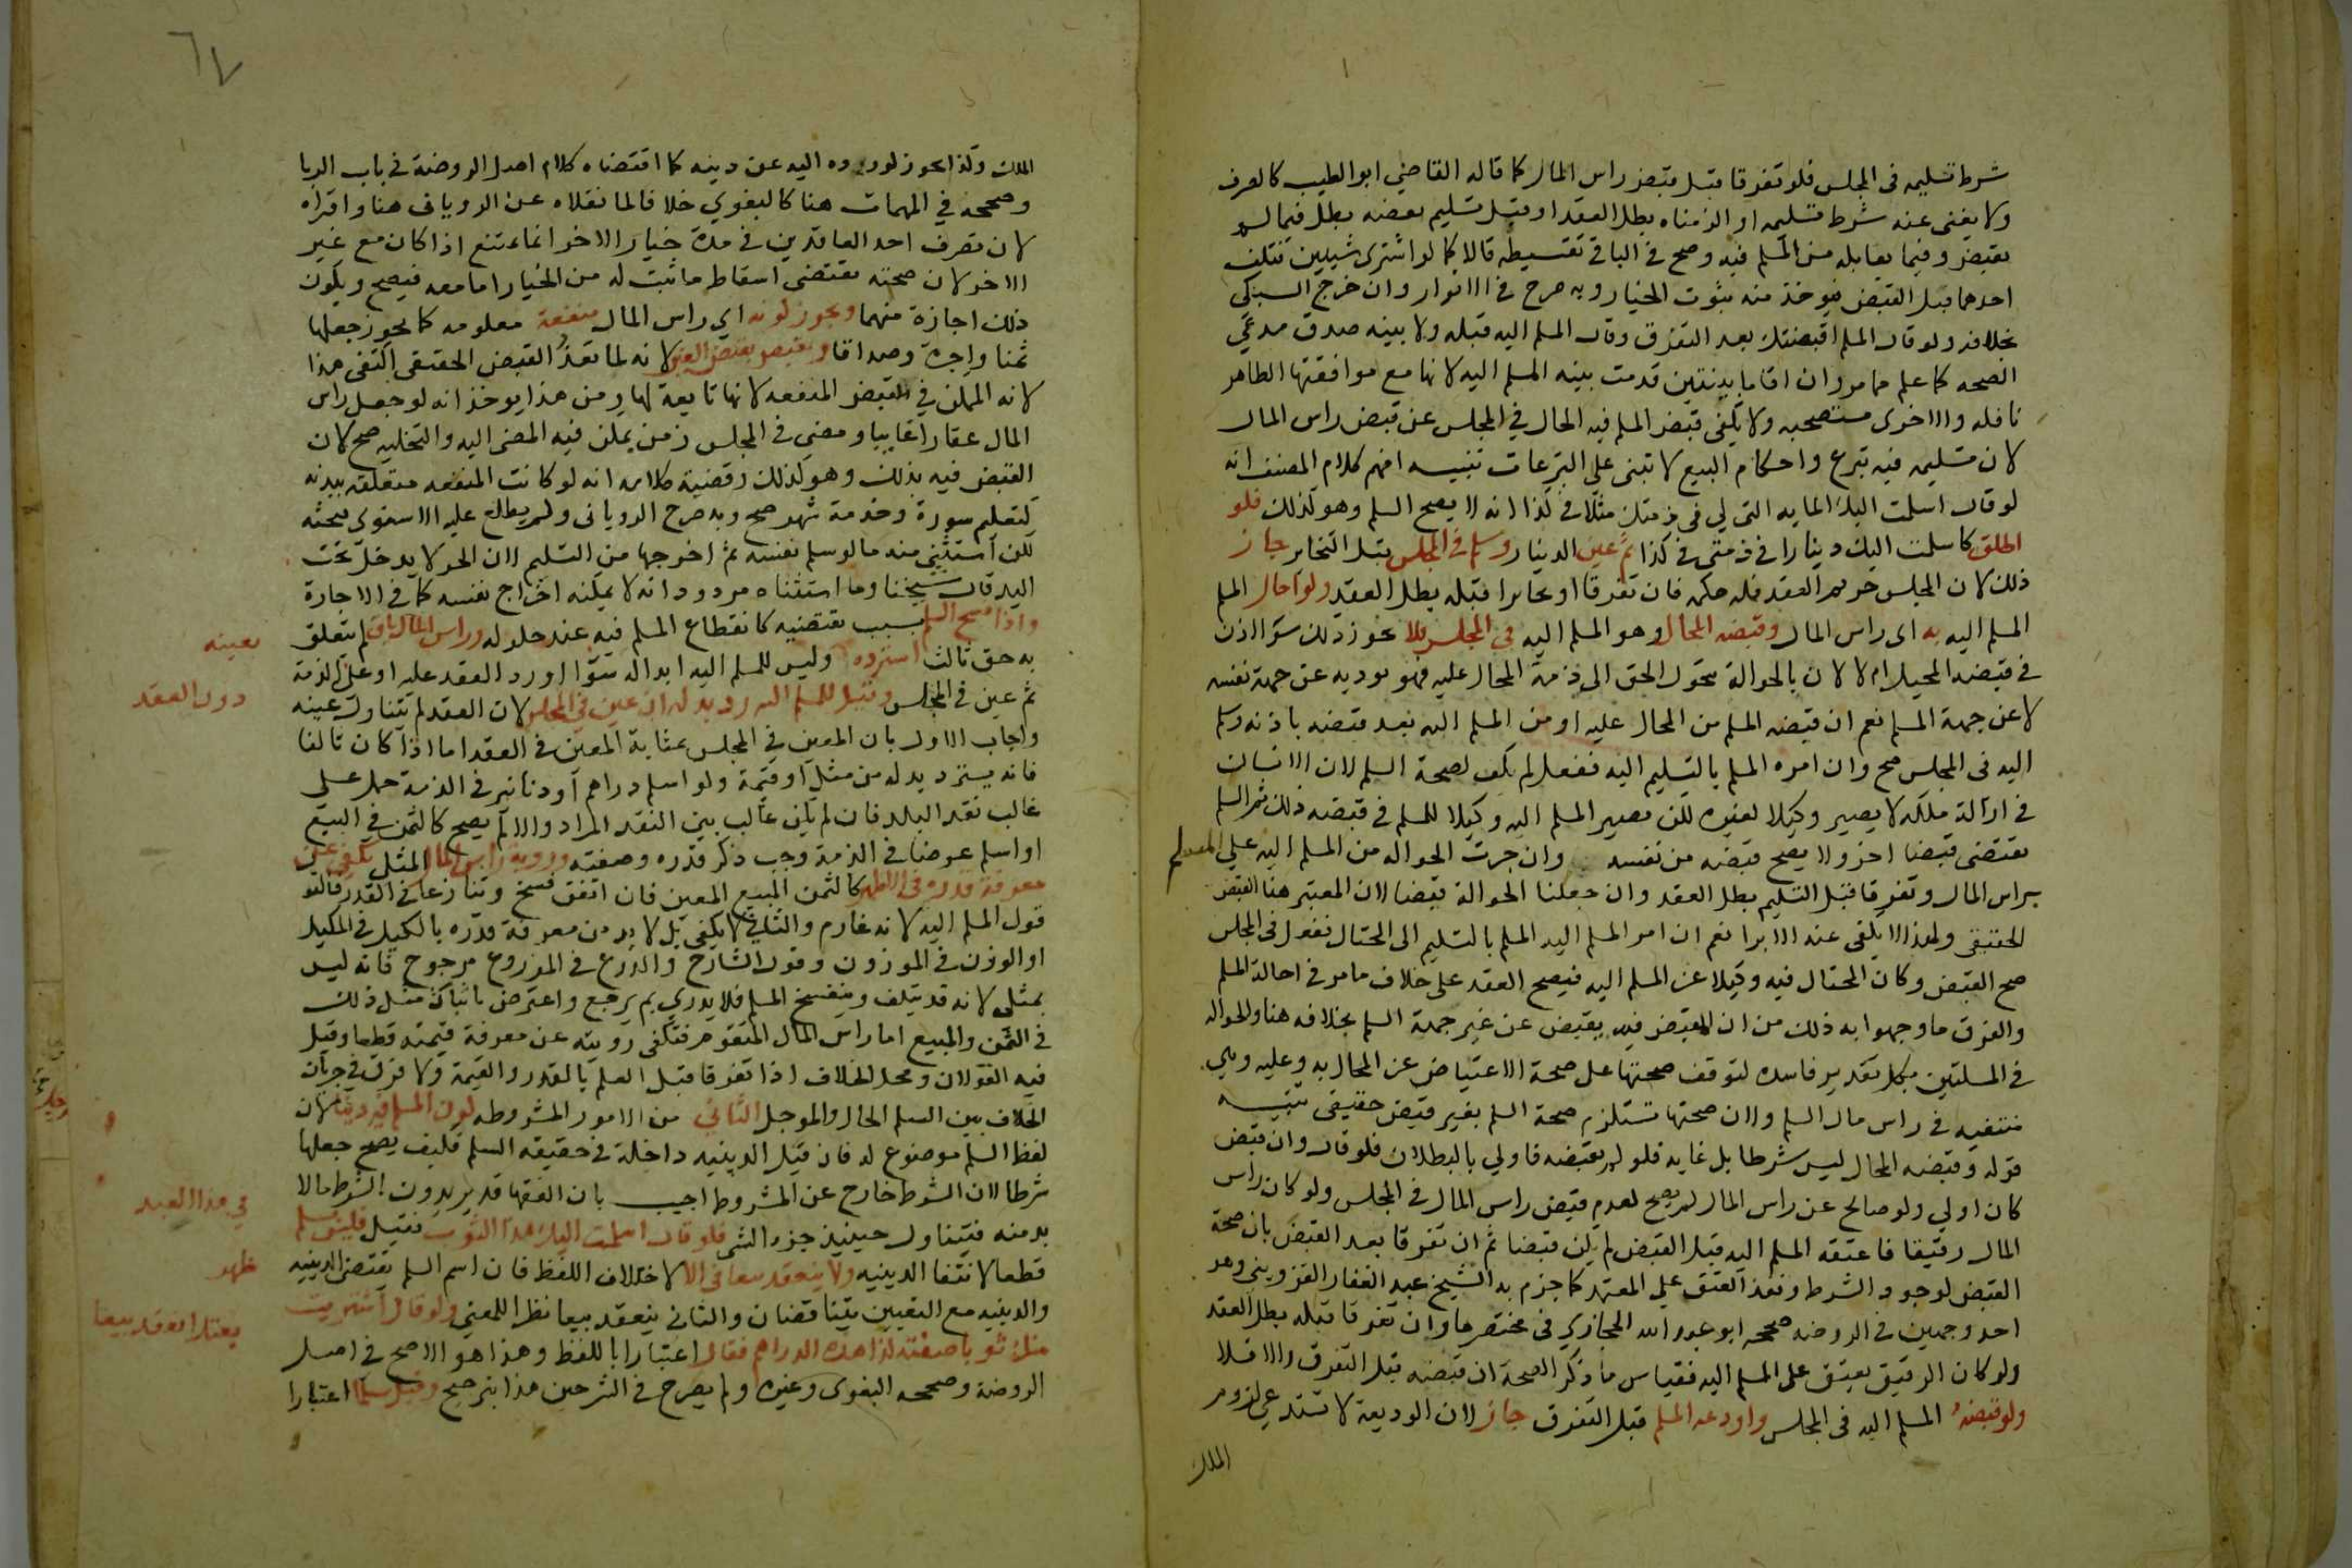 شرط تسليمه في المجلس فلو تفرقا قبل قبض راس المال كما قاله القاضي ابو الطيب كالصرف
ولا يغني عنه شرط تسليمه او الزمناه بطل العقد او قبل تسليم بعضه بطل فيما لم
يقبض وفيما يقابله من المسلم فيه وصح في الباقي بقسطه قالا كما لو اشترى شيين فتلف
احدهما قبل القبض فيوخذ منه ثبوت الخيار وبه صرح في الانوار وان خرج السبكي
بخلافه ولو قال المسلم اقبضتك بعد التفرق وقال المسلم اليه قبله ولا بينه صدق مدعي
الصحه كما علم مما مر وان اقاما بينتين قدمت بينه المسلم اليه لانها مع موافقتها الظاهر
ناقله والاخرى مستصحبه ولا يكفي قبض المسلم فيه الحال في المجلس عن قبض راس المال
لان تسليمه فيه تبرع واحكام البيع لا تبنى على التبرعات تنبيه افهم كلام المصنف انه
لو قال اسلمت اليك المايه التي لي في ذمتك مثلا في كذا انه لا يصح السلم وهو كذلك فلو
اطلق كاسلمت اليك دينارا في ذمتي في كذا ثم عين الدينار وسلم في المجلس قبل التخاير جاز
ذلك لان المجلس حريم العقد فله حكمه فان تفرقا او تخايرا قبله بطل العقد ولو احال المسلم
المسلم اليه به اي راس المال وقبضه المحال وهو المسلم اليه في المجلس فلا يجوز ذلك سوا اذن
في قبضه المحيل ام لا لان بالحوالة يتحول الحق الى ذمة المحال عليه فهو يوديه عن جهة نفسه
لا عن جهة المسلم نعم ان قبضه المسلم من المحال عليه او من المسلم اليه بعد قبضه باذنه وسلم
اليه في المجلس صح وان امره المسلم بالتسليم اليه ففعل لم يكف لصحة السلم لان الانسان
في ازالة ملكه لا يصير وكيلا لغيره لكن يصير المسلم اليه وكيلا للمسلم في قبضه ذلك ثم السلم
يقتضي قبضا اخر ولا يصح قبضه من نفسه وان جرت الحواله من المسلم اليه علي المسلم
براس المال وتفرقا قبل التسليم بطل العقد وان جعلنا الحوالة قبضا لان المعتبر هنا القبض
الحقيقي ولهذا لا يكفي عنه الابرا نعم ان امر المسلم اليه المسلم بالتسليم الى المحتال ففعل في المجلس
صح القبض وكان المحتال فيه وكيلا عن المسلم اليه فيصح العقد على خلاف ما مر في احالة المسلم
والفرق ما وجهوا به ذلك من ان المقبض فيه يقبض عن غير جهة السلم بخلافه هنا والحواله
في المسلتين بكل تقدير فاسده لتوقف صحتها على صحة الاعتياض عن المحال به وعليه وهي
منتفيه في راس مال السلم ولان صحتها تستلزم صحة السلم بغير قبض حقيقي تنبيه
قوله وقبضه المحال ليس شرطا بل غايه فلو لم يقبضه فاولي بالبطلان فلو قال وان قبض
كان اولي ولو صالح عن راس المال لم يصح لعدم قبض راس المال في المجلس ولو كان راس
المال رقيقا فاعتقه المسلم اليه قبل القبض لم يكن قبضا ثم ان تفرقا بعد القبض بان صحة
القبض لوجود الشرط ونفذ العتق على المعتمد كما جزم به الشيخ عبد الغفار القزويني وهو
احد وجهين في الروضه صححه ابو عبد الله الحجازي في مختصرها وان تفرقا قبله بطل العقد
ولو كان الرقيق يعتق على المسلم اليه فقياس ما ذكر الصحة ان قبضه قبل التفرق والا فلا
ولو قبضه المسلم اليه في المجلس واودعه المسلم قبل التفرق جاز لان الوديعة لا تستدعي لزوم
الملك
٦٧
الملك وكذا يجوز لو رده اليه عن دينه كما اقتضاه كلام اصل الروضة في باب الربا
وصححه في المهمات هنا كالبغوي خلافا لما نقلاه عن الروياني هنا واقراه
لان تصرف احد العاقدين في مدة خيار الاخر انما يمتنع اذا كان مع غير
الاخر لان صحته تقتضي اسقاط ما ثبت له من الخيار اما معه فيصح ويكون
ذلك اجازة منهما ويجوز كونه اي راس المال منفعة معلومه كما يجوز جعلها
ثمنا واجرة وصداقا وتقبض بقبض العين لانه لما تعذر القبض الحقيقي اكتفي هذا
لانه الممكن في قبض المنفعه لانها تابعة لها ومن هذا يوخذ انه لو جعل راس
المال عقارا غايبا ومضى في المجلس زمن يمكن فيه المضي اليه والتخليه صح لان
القبض فيه بذلك وهو كذلك وقضية كلامه انه لو كانت المنفعه متعلقه ببدنه
كتعليم سورة وخدمة شهر صح وبه صرح الروياني ولم يطلع عليه الاسنوي فبحثه
لكن استثنى منه ما لو سلم نفسه ثم اخرجها من التسليم لان الحر لا يدخل تحت
اليد قال شيخنا وما استثناه مردود انه لا يمكنه اخراج نفسه كما في الاجارة
واذا فسخ السلم بسبب يقتضيه كانقطاع المسلم فيه عند حلوله وراس المال باق لم يتعلق
به حق ثالث استرده بعينه وليس للمسلم اليه ابداله سوا اورد العقد عليه او على الذمة
ثم عين في المجلس وقيل للمسلم اليه رد بدله ان عين في المجلس دون العقد لان العقد لم يتناول عينه
واجاب الاول بان المعين في المجلس بمثابة المعين في العقد اما اذا كان تالفا
فانه يسترد بدله من مثل او قيمة ولو اسلم دراهم او دنانير في الذمة حمل على
غالب نقد البلد فان لم يكن غالب بين النقد المراد والا لم يصح كالثمن في البيع
او اسلم عرضا في الذمة وجب ذكر قدره وصفته وروية راس المال المثلي تكفي عن
معرفة قدره في الاظهر كالثمن المبيع المعين فان اتفق فسخ وتنازعا في القدر فالقول
قول المسلم اليه لانه غارم والثاني لا يكفي بل لا بد من معرفة قدره بالكيل في المكيل
او الوزن في الموزون وقول الشارح والذرع في المزروع مرجوح فانه ليس
بمثلي لانه قد يتلف وينفسخ السلم فلا يدري بم يرجع واعترض باتيان مثل ذلك
في الثمن والمبيع اما راس المال المتقوم فتكفي رويته عن معرفة قيمته قطعا وقيل
فيه القولان ومحل الخلاف اذا تفرقا قبل العلم بالقدر والقيمة ولا فرق في جريان
الخلاف بين السلم الحال والموجل الثاني من الامور المشروطه كون المسلم فيه دينا لان
لفظ السلم موضوع له فان قيل الدينيه داخلة في حقيقه السلم فكيف يصح جعلها
شرطا لان الشرط خارج عن المشروط اجيب بان الفقها قد يريدون بالشرط مالا
بد منه فيتناول حينيذ جزء الشي فلو قال اسلمت اليك هذا الثوب في هذا العبد فقبل فليس بسلم
قطعا لانتفا الدينيه ولا ينعقد بيعا في الاظهر لاختلاف اللفظ فان اسم السلم يقتضي الدينيه
والدينيه مع التعيين يتناقضان والثاني ينعقد بيعا نظرا للمعنى ولو قال اشتريت
منك ثوبا صفته كذا بهذه الدراهم فقال بعتك انعقد بيعا اعتبارا باللفظ وهذا هو الاصح في اصل
الروضة وصححه البغوي وغيره ولم يصرح في الشرحين هذا بترجيح وقيل سلما اعتبارا